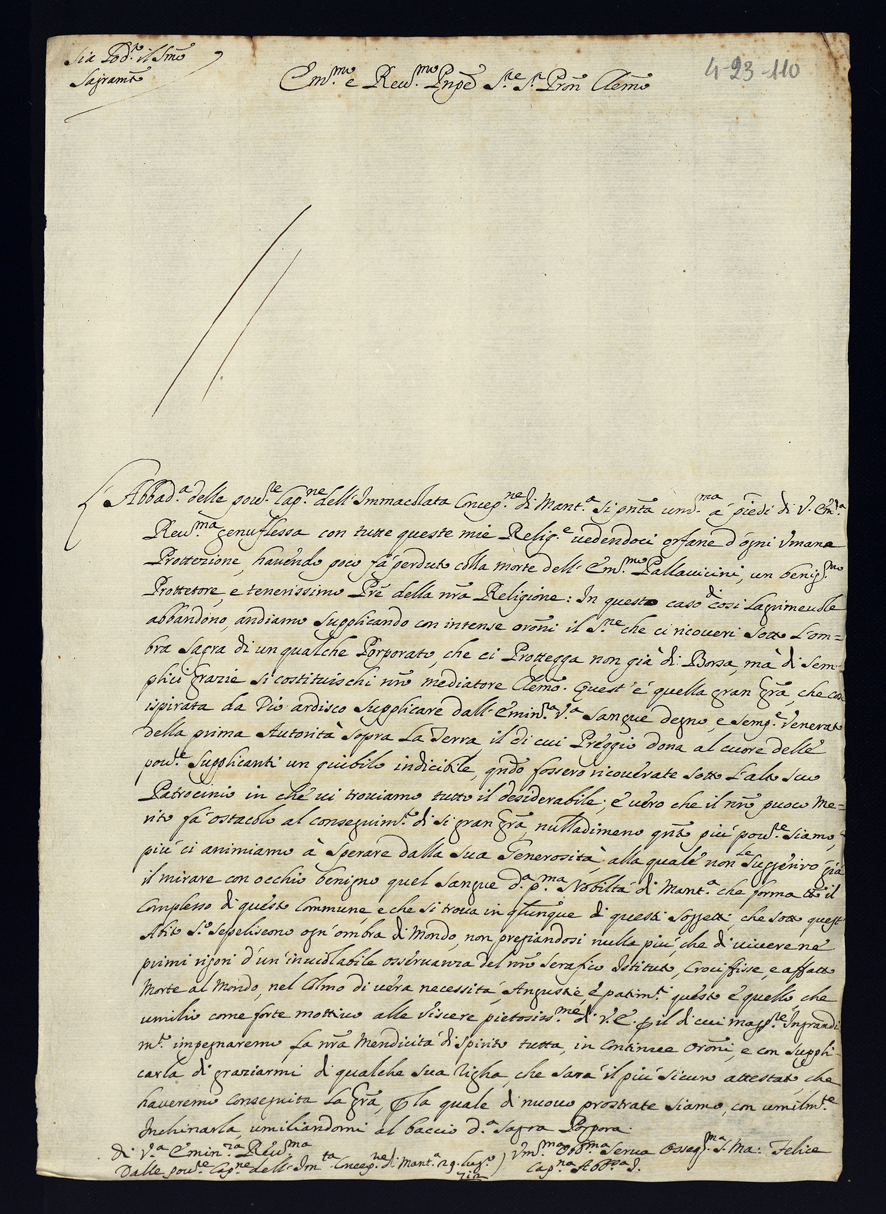 Sia Lod.to il SSmo
Sagram.to
4-23-110
Em.mo e Rev.mo Pnpe S.re S.r Pron Clemo
Abbad.a delle pov.re Cap.ne dell'Immacolata Concep.ne di Mant.a si pnta um.ma à piedi di V. Em.a
Rev.ma genuflessa con tutte queste mie Relig.e vedendoci orfane d'ogni Umana
Prottezione, havendo poco fà perduto colla morte dell'Em.mo Pallavicini, un benig.mo
Prottetore, e tenerissimo Pre della nra Religione: In questo caso di così lagrimevole
abbandono, andiamo supplicando con intense oroni il S.re che ci ricoveri sotto l'om=
bra sagra di un qualche Porporato, che ci Protegga non già di Borsa, mà di sem-
plici grazie si costituischi nro mediatore Clemo. Quest'è quella gran gra, che
ispirata da Dio ardisco supplicare dall'Emin.za V.a Sangue degno, e semp.e Venerato
della prima Autorità sopra la Terra, il di cui Preggio dona al cuore delle
pov.re supplicanti un giubilo indicibile, qndo fossero ricoverate sotto l'alto suo
Patrocinio in che vi troviamo tutto il desiderabile; è vero che il nro puoco Me=
rito fà ostacolo al conseguim.to di sì gran gra, nulladimeno qnto più pov.re siamo,
più ci animiamo à sperare dalla sua Generosità, alla quale non le suggerirò già
il mirare con occhio benigno quel sangue d.a p.ma Nobiltà di Mant.a che forma tto il
Complesso di questo Commune, e che si trova in di questi soggetti, che sotto quest
Abito S.o sepeliscono ogn'ombra di Mondo, non pregiandosi nulla più, che di vivere ne'
primi rigori d'un'inviolabile osservanza del nro Serafico Istituto, Crocifisse, e affatto
Morte al Mondo, nel Colmo di vera necessità, Angustie, e patim.ti questo è quello, che
umilio come forte mottivo alle viscere pietosiss.me di V.E. p il di cui magg.re Ingrandi-
m.to impegnaremo la nra Mendicità di spirito tutta, in continue Oroni, e con suppli-
carla di graziarmi di qualche sua righa, che sarà il più sicuro attestato, che
haveremo conseguita la gra, p la quale di nuovo prostrate siamo, con umilm.te
Inchinarla umiliandomi al baccio d.a Sagra Porpora.
di V.a Emin.za Rev.ma
Dalle pov.re Cap.ne dell'Im.ta Concep.ne di Mant.a 29. lug.o
712
Um.ma Obb.ma Serva Osseq.ma S. Ma: Felice
Cap.na Abb.a I.